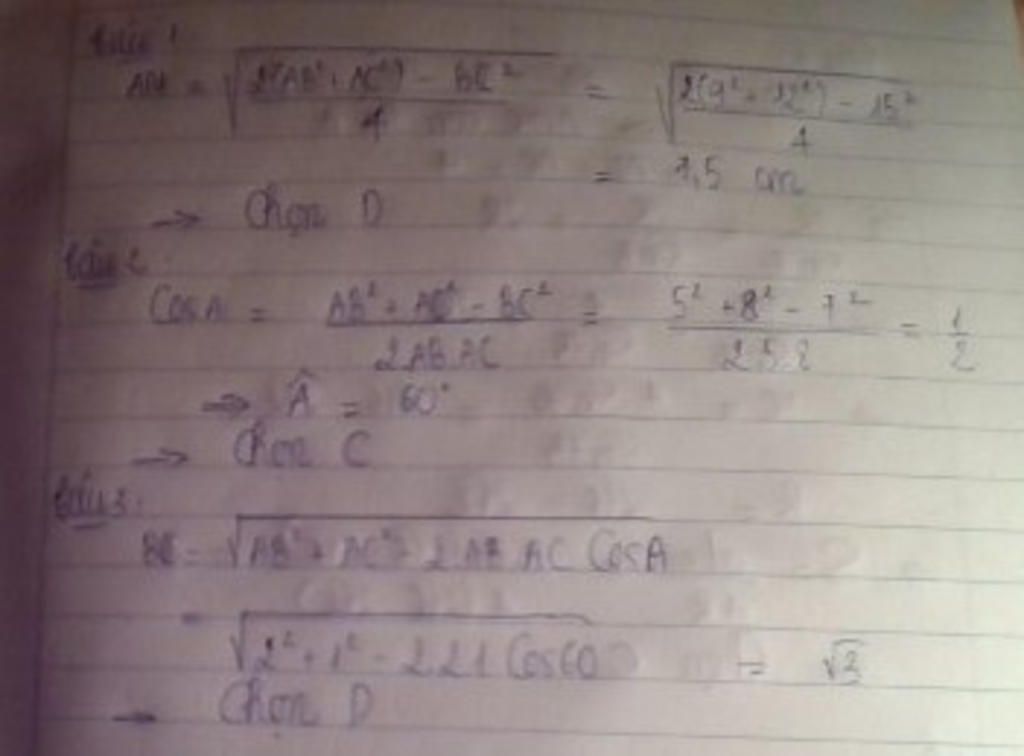 Câu 1
AM = √((2(AB² + AC²) - BC²)/4) = √((2(9² + 12²) - 15²)/4)
= 7,5 cm
→ Chọn D
Câu 2
CosA = (AB² + AC² - BC²)/(2AB.AC) = (5² + 8² - 7²)/(2.5.8) = 1/2
⇒ Â = 60°
→ Chọn C
Câu 3:
BC = √(AB² + AC² - 2AB.AC CosA)
= √(2² + 1² - 2.2.1 Cos60) = √3
→ Chọn D